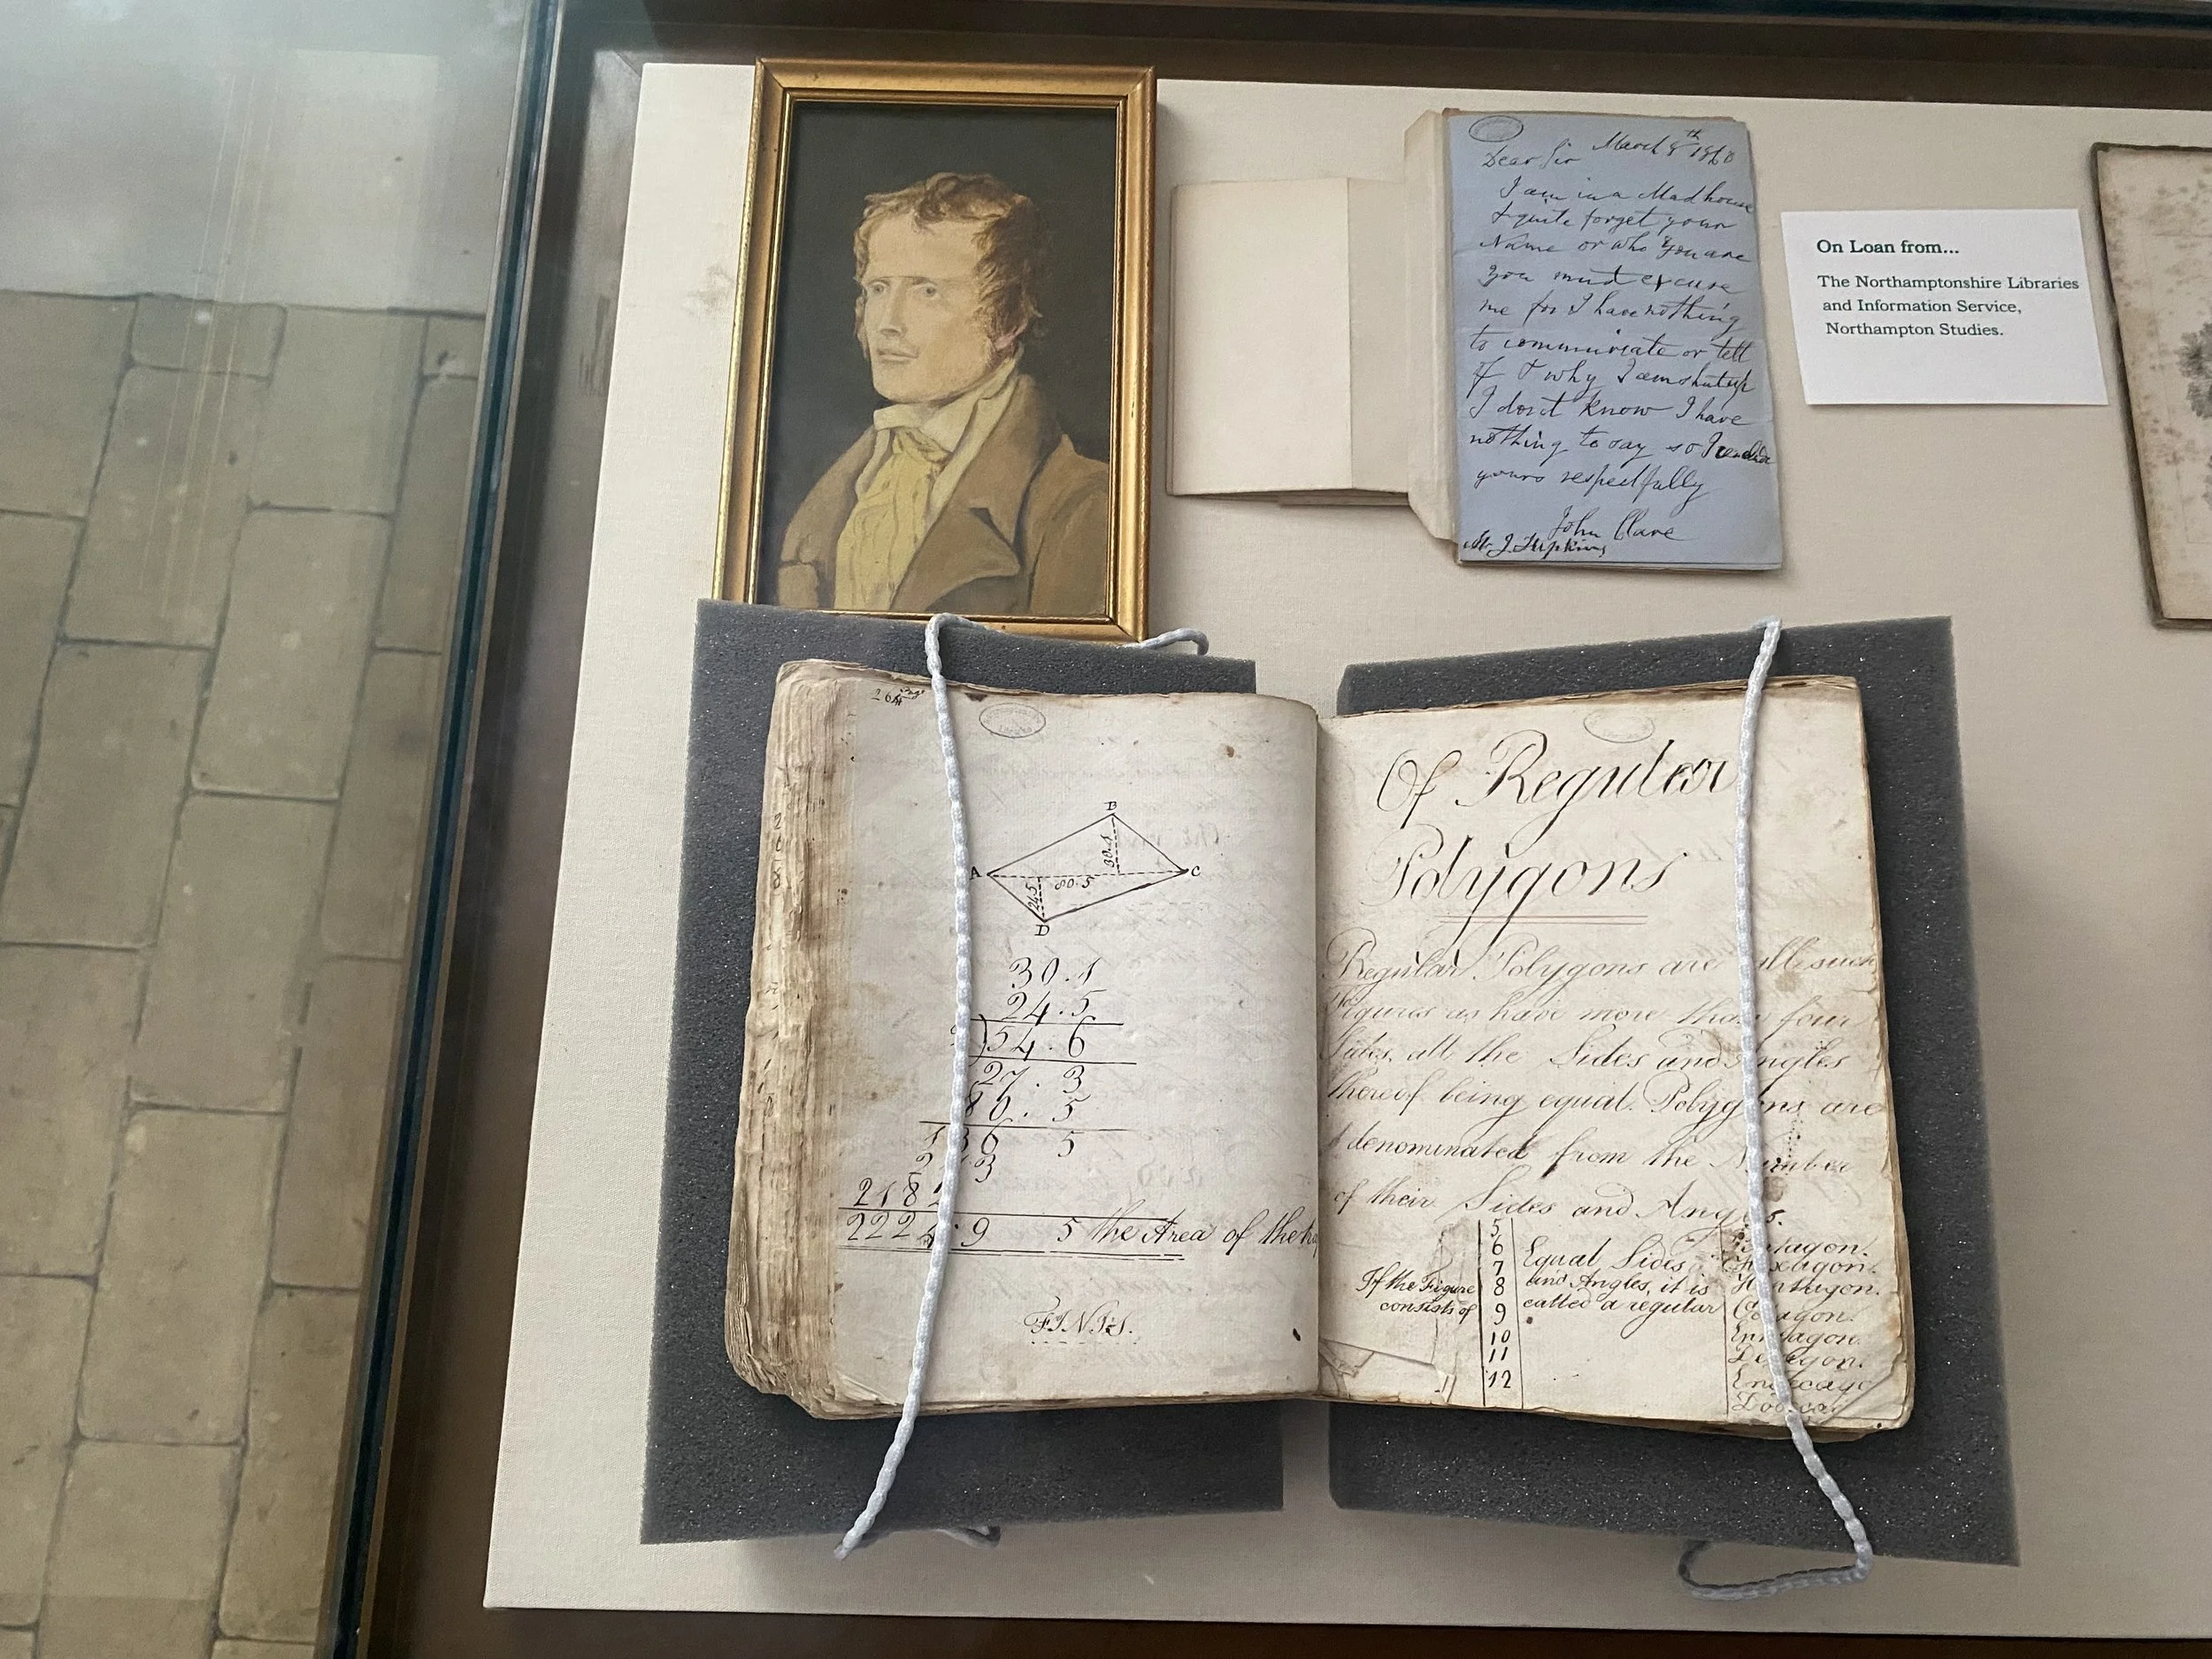 March 8th 1860
Dear Sir
I am in a Madhouse
& quite forget your
Name or who you are
you must excuse
me for I have nothing
to communicate or tell
of & why I am shut up
I dont know I have
nothing to say so I conclude
yours respectfully
John Clare
Mr J Hopkins
On Loan from...
The Northamptonshire Libraries
and Information Service,
Northampton Studies.
B
30.1
A
80.5
C
24.5
D
30.1
24.5
54.6
27.3
80.5
136 5
222 .9 5 the Area of the
FINIS.
Of Regular
Polygons
Regular Polygons are all such
Figures as have more than four
Sides, all the Sides and Angles
thereof being equal. Polygons are
denominated from the Number
of their Sides and Angles.
If the Figure
consists of
5
6
7
8
9
10
11
12
Equal Sides
and Angles, it is
called a regular
Pentagon.
Hexagon.
Octagon.
Decagon.